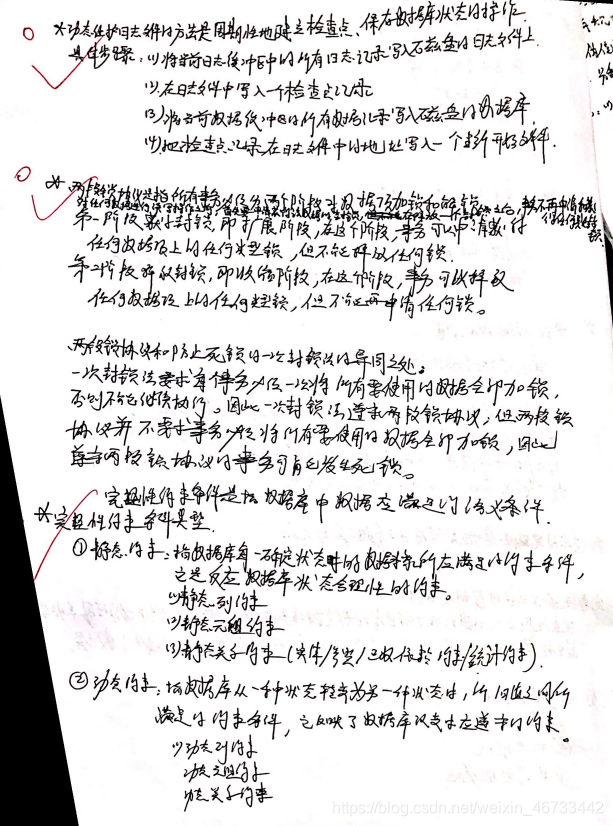 *动态维护日志文件的方法是周期性地建立检查点、保存数据库状态的操作.
具体步骤:(1)将当前日志缓冲区中的所有日志记录写入磁盘的日志文件上
(2)在日志文件中写入一个检查点记录
(3)将当前数据缓冲区的所有数据记录写入磁盘的数据库
(4)把检查点记录在日志文件中的地址写入一个重新开始文件.
* 两段锁协议是指所有事务必须分两个阶段对数据项加锁和解锁
第一阶段是封锁,即扩展阶段,在这个阶段,事务可以申请获得
任何数据项上的任何类型锁,但不能释放任何锁.
第二阶段释放封锁,即收缩阶段,在这个阶段,事务可以释放
任何数据项上的任何类型锁,但不能再申请任何锁。
两段锁协议和防止死锁的一次封锁法的异同之处。
一次封锁法要求每个事务必须一次将所有要使用的数据全部加锁,
否则不能继续执行。因此一次封锁法遵守两段锁协议,但两段锁
协议并不要求事务必须将所有要使用的数据全部加锁,因此
遵守两段锁协议的事务可能发生死锁。
完整性约束条件是指数据库中数据应满足的语义条件
*完整性约束条件类型.
①静态约束:指数据库每一确定状态时的数据对象所应满足的约束条件,
它是反应数据库状态合理性的约束。
(1)静态列约束
(2)静态元组约束
(3)静态关系约束(实体/参照/函数依赖约束/统计约束).
②动态约束:指数据库从一种状态转变为另一种状态时,新旧值之间所
满足的约束条件,它反映了数据库状态变迁的约束。
(1)动态列约束
动态元组约束
动态关系约束
https://blog.csdn.net/weixin_46733442